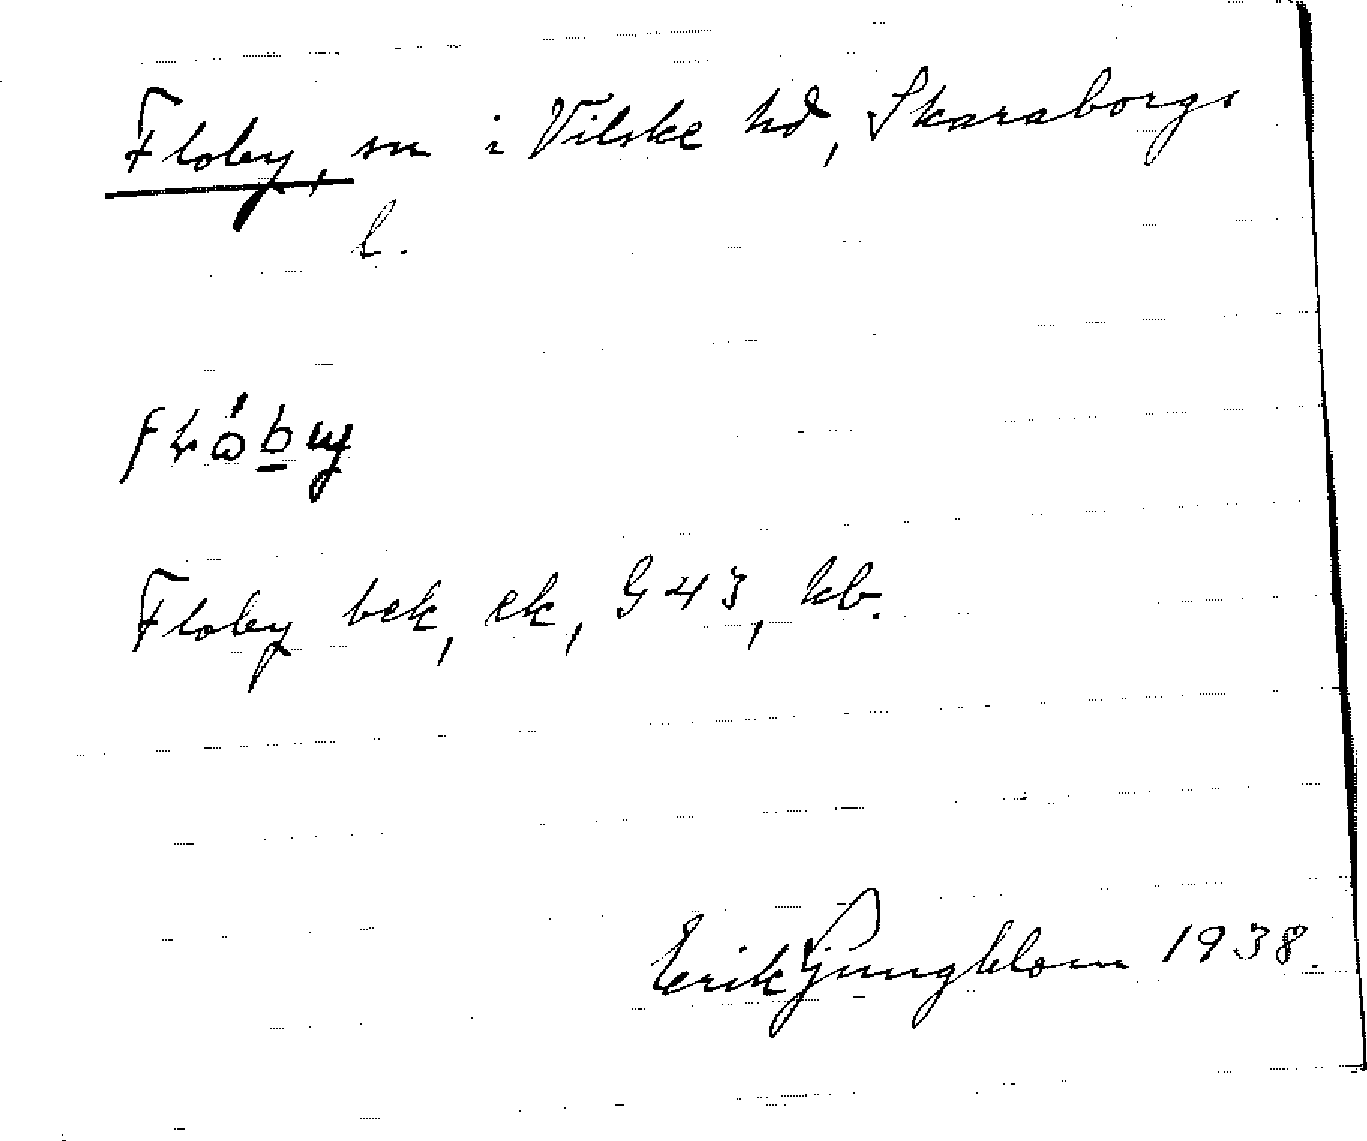 Floby, sn i Vilske hd, Skaraborgs
l.
Floby bek, ek, G43, kb.
Erik Ljungblom 1938.